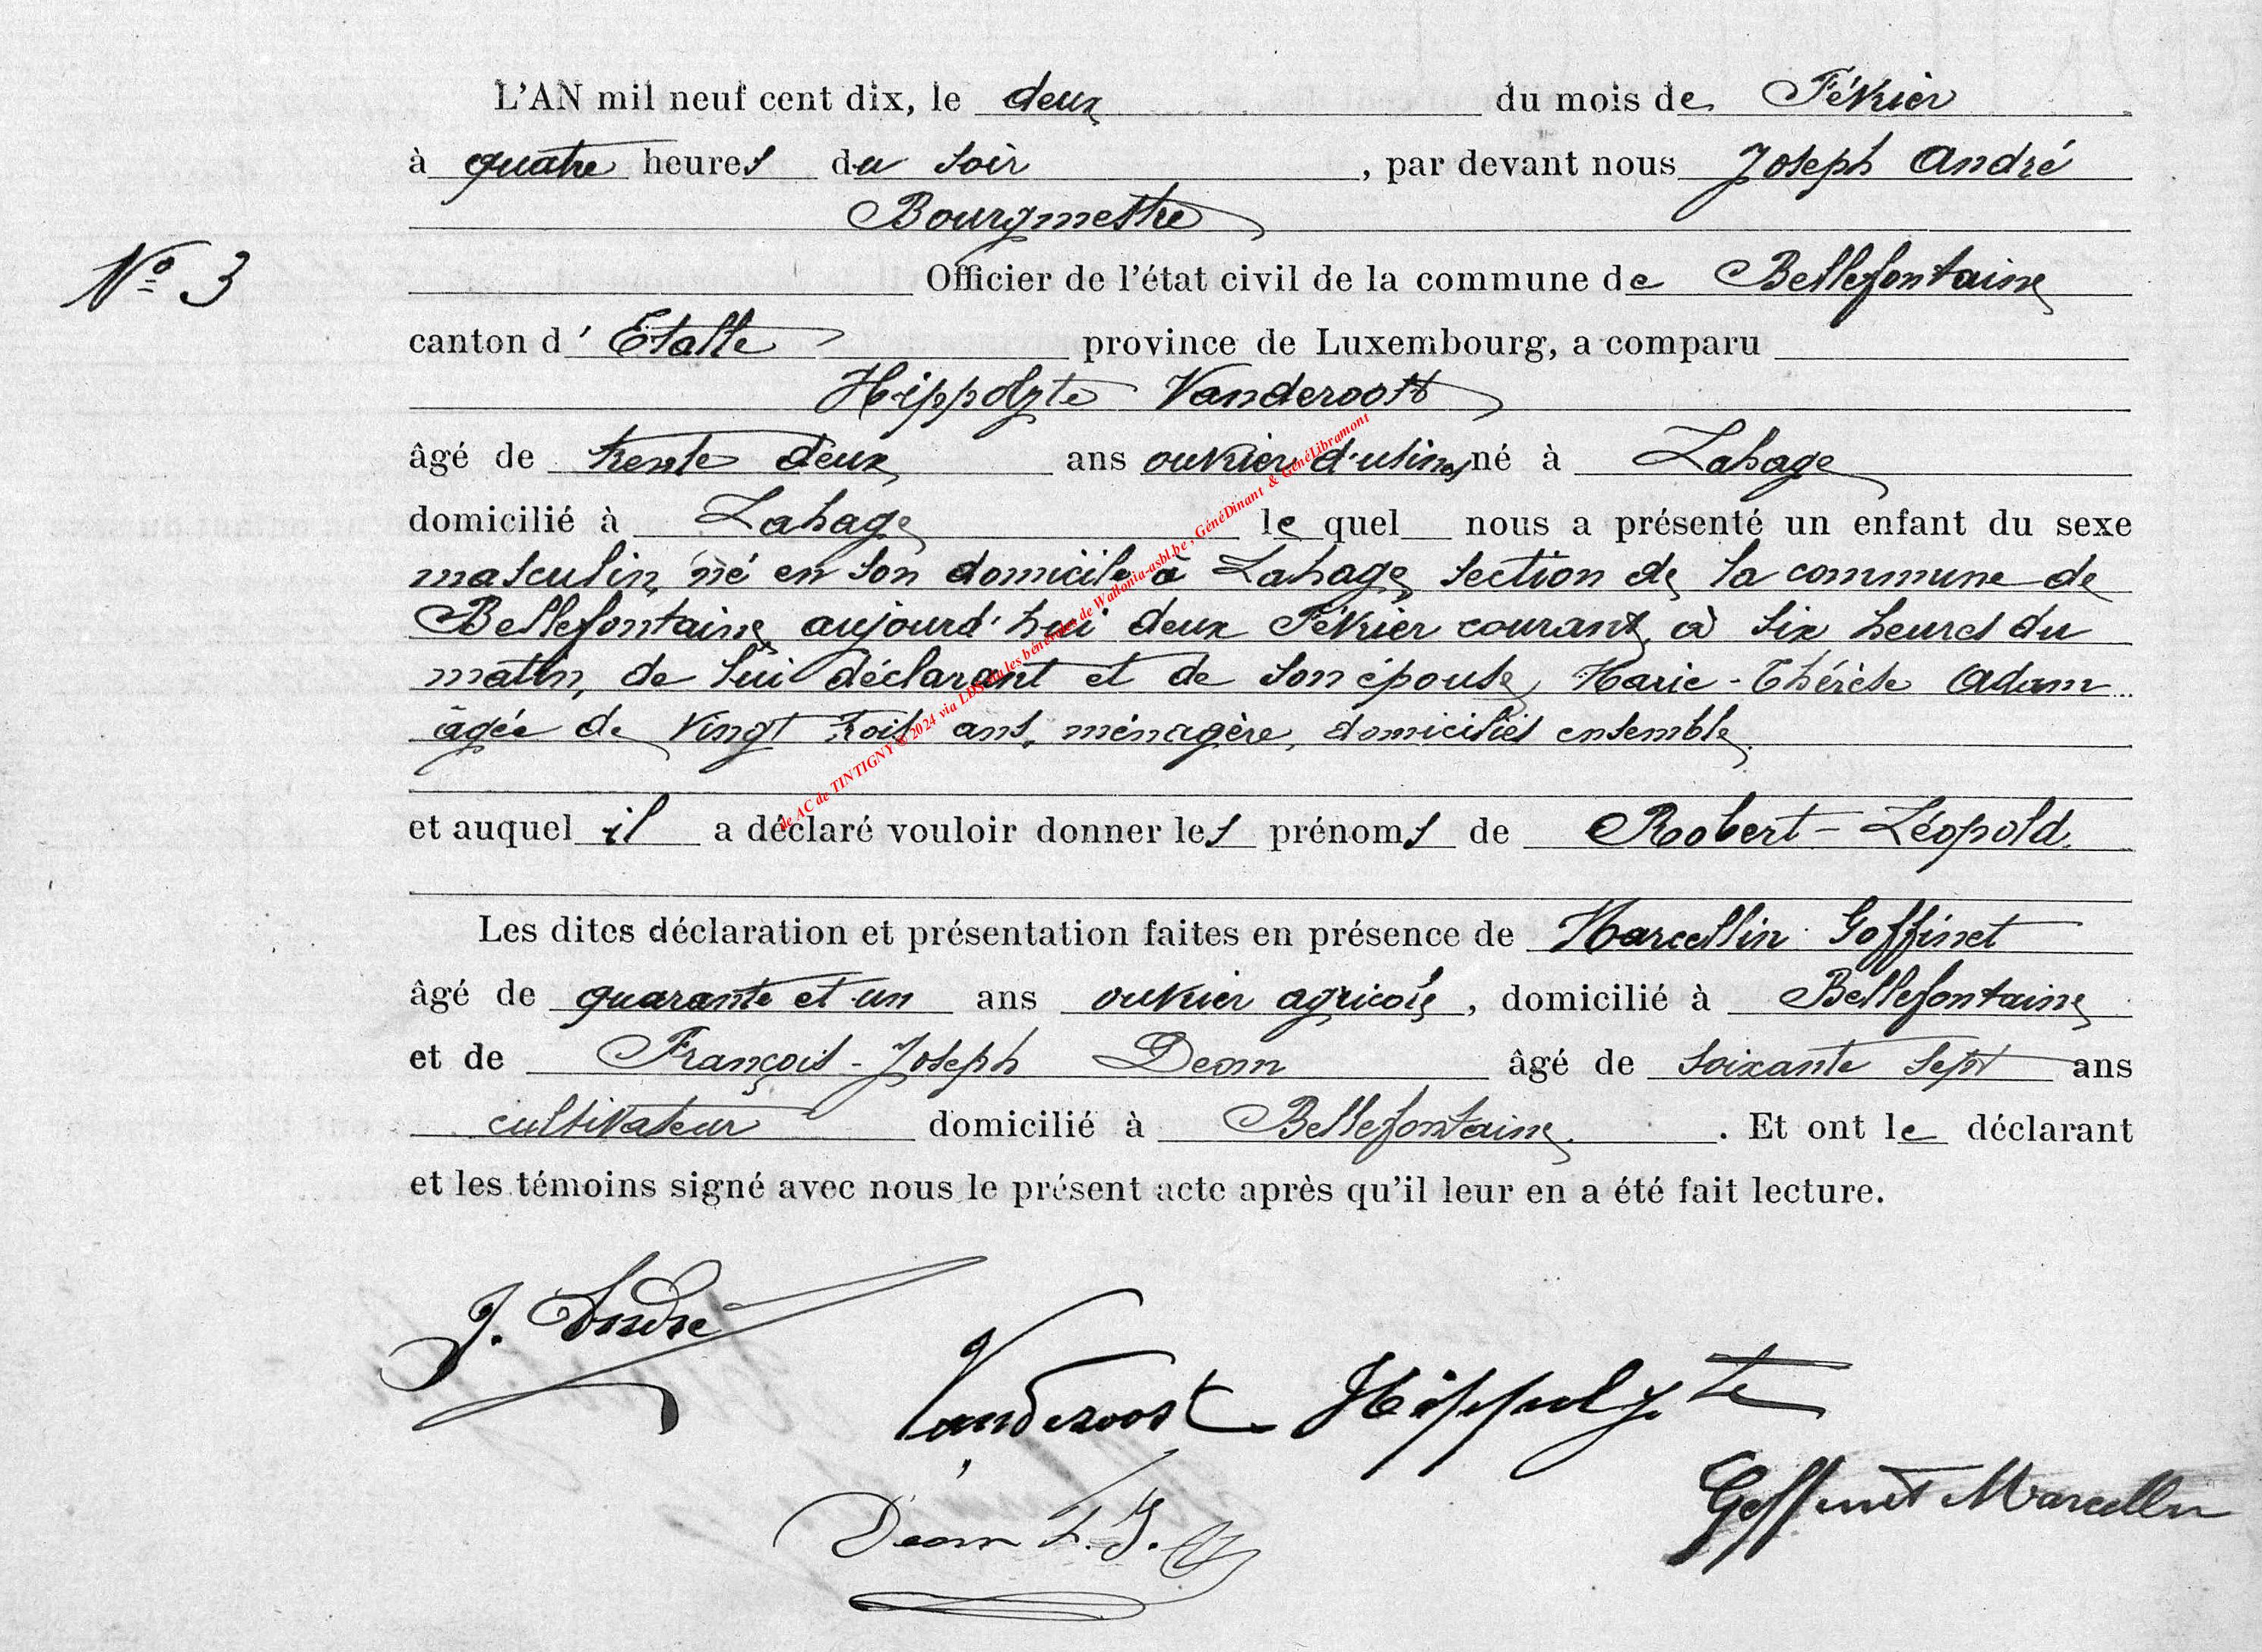 L'AN mil neuf cent dix, le deux du mois de Février
à quatre heures du soir, par devant nous Joseph André
Bourgmestre
N° 3
Officier de l'état civil de la commune de Bellefontaine
canton d'Etalle province de Luxembourg, a comparu
Hippolyte Vanderoost
âgé de trente deux ans ouvrier d'usine, né à Lahage
domicilié à Lahage le quel nous a présenté un enfant du sexe
masculin, né en son domicile à Lahage, section de la commune de
Bellefontaine, aujourd'hui deux Février courant, à six heures du
matin, de lui déclarant et de son épouse, Marie-Thérèse Adam
âgée de vingt trois ans, ménagère, domiciliés ensemble.
et auquel il a déclaré vouloir donner les prénoms de Robert-Léopold.
Les dites déclaration et présentation faites en présence de Marcellin Goffinet
âgé de quarante et un ans ouvrier agricole, domicilié à Bellefontaine
et de François-Joseph Deom âgé de soixante sept ans
cultivateur domicilié à Bellefontaine. Et ont le déclarant
et les témoins signé avec nous le présent acte après qu'il leur en a été fait lecture.
J. André
Vanderoost Hippolyte
Goffinet Marcellin
Deom F. J.
de AC de TINTIGNY © 2024 via LDS via les bénévoles de Wallonia-asbl.be, GénéDinant & GénéLibramont